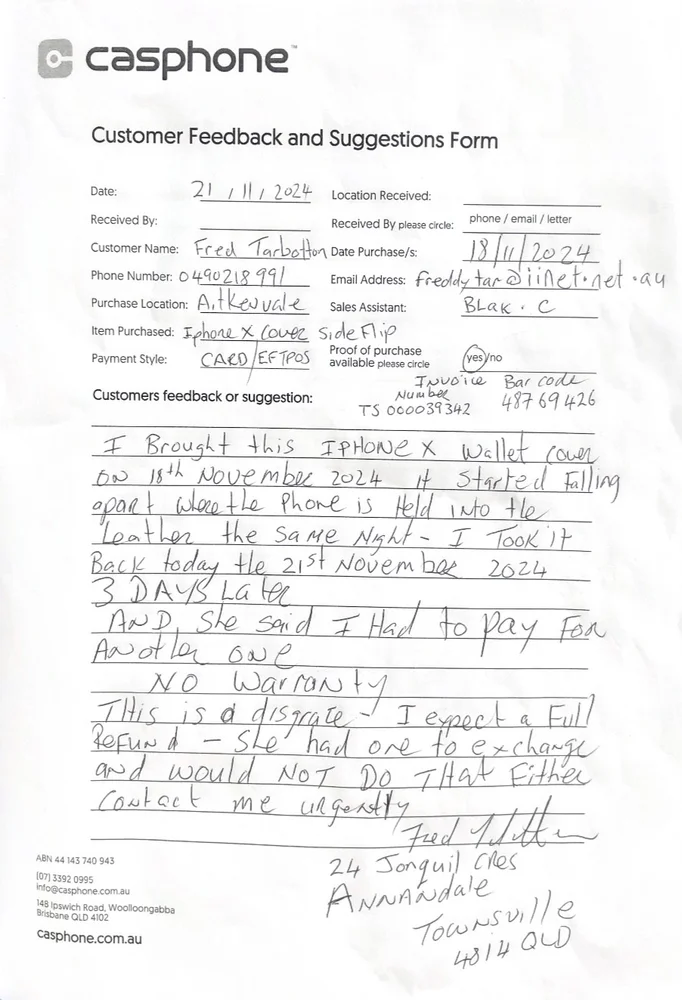 casphone™
Customer Feedback and Suggestions Form
Date: 21 / 11 / 2024 Location Received:
Received By: Received By please circle: phone / email / letter
Customer Name: Fred Tarbotton Date Purchase/s: 18/11/2024
Phone Number: 0490218991 Email Address: Freddytar@iinet.net.au
Purchase Location: Aitkenvale Sales Assistant: BLAK. C
Item Purchased: Iphone X Cover Side Flip
Payment Style: CARD/EFTPOS Proof of purchase available please circle yes/no
Customers feedback or suggestion: Invoice Number TS 000039342 Bar code 48769426
I Brought this IPHONE X Wallet cover
ON 18th NOVEMBER 2024 it Started Falling
apart where the Phone is Held into the
Leather the Same Night - I Took it
Back today the 21st November 2024
3 DAYS Later
AND She said I Had to pay For
Another one
NO Warranty
This is a disgrate - I expect a Full
Refund - She had one to exchange
and would NOT DO THAT Either
Contact me urgently
24 Jonquil Cres
ANNANDALE
TOWNSVILLE
4814 QLD
ABN 44 143 740 943
(07) 3392 0995
info@casphone.com.au
148 Ipswich Road, Woolloongabba
Brisbane QLD 4102
casphone.com.au